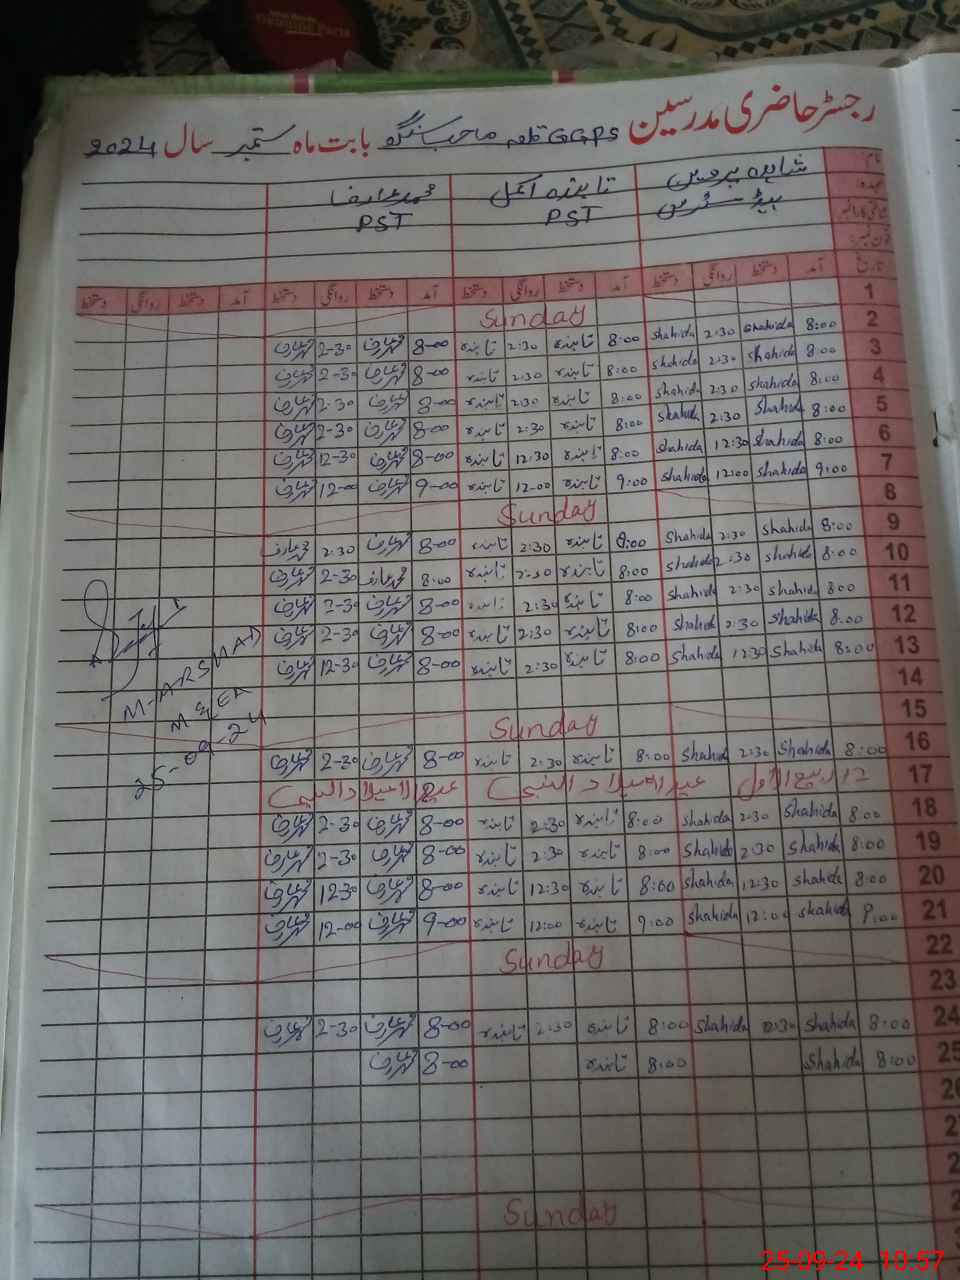 رجسٹر حاضری مدرسین GGPS قلعہ صاحب سنگھ بابت ماہ ستمبر سال 2024
نام: شاہدہ پروین تابندہ اکمل
عہدہ ہیڈ مسٹریس PST PST
فون نمبر:
تاریخ آمد دستخط روانگی دستخط آمد دستخط روانگی دستخط آمد دستخط روانگی دستخط آمد دستخط روانگی دستخط
1 Sunday
2 8:00 shahida 2:30 shahida 8:00 تابندہ 2:30 تابندہ 8-00 2-30
3 8:00 shahida 2:30 shahida 8:00 تابندہ 2:30 تابندہ 8-00 2-30
4 8:00 shahida 2:30 shahida 8:00 تابندہ 2:30 تابندہ 8-00 2-30
5 8:00 shahida 2:30 shahida 8:00 تابندہ 2:30 تابندہ 8-00 2-30
6 8:00 shahida 12:30 shahida 8:00 تابندہ 12:30 تابندہ 8-00 12-30
7 9:00 shahida 12:00 shahida 9:00 تابندہ 12-00 تابندہ 9-00 12-00
8 Sunday
9 8:00 shahida 2:30 shahida 8:00 تابندہ 2:30 تابندہ 8-00 2:30
10 8:00 shahida 2:30 shahida 8:00 تابندہ 2-30 تابندہ 8:00 2-30
11 8:00 shahida 2:30 shahida 8:00 تابندہ 2:30 تابندہ 8-00 2-30
12 8:00 shahida 2:30 shahida 8:00 تابندہ 2:30 تابندہ 8-00 2-30
13 8:00 shahida 12:30 shahida 8:00 تابندہ 2:30 تابندہ 8-00 12-30
14
15 Sunday
16 8:00 shahida 2:30 shahida 8:00 تابندہ 2:30 تابندہ 8-00 2-30
17 12 ربیع الاول عید المیلاد النبی عید المیلاد النبی
18 8:00 shahida 2:30 shahida 8:00 تابندہ 2:30 تابندہ 8-00 2-30
19 8:00 shahida 2:30 shahida 8:00 تابندہ 2:30 تابندہ 8-00 2-30
20 8:00 shahida 12:30 shahida 8:00 تابندہ 12:30 تابندہ 8-00 1230
21 9:00 shahida 12:00 shahida 9:00 تابندہ 12:00 تابندہ 9-00 12-00
22 Sunday
23
24 8:00 shahida 2:30 shahida 8:00 تابندہ 2:30 تابندہ 8-00 2-30
25 8:00 shahida 8:00 تابندہ 8-00
Sunday
M-ARSHAD
MEEA
25-09-24
25-09-24 10:57